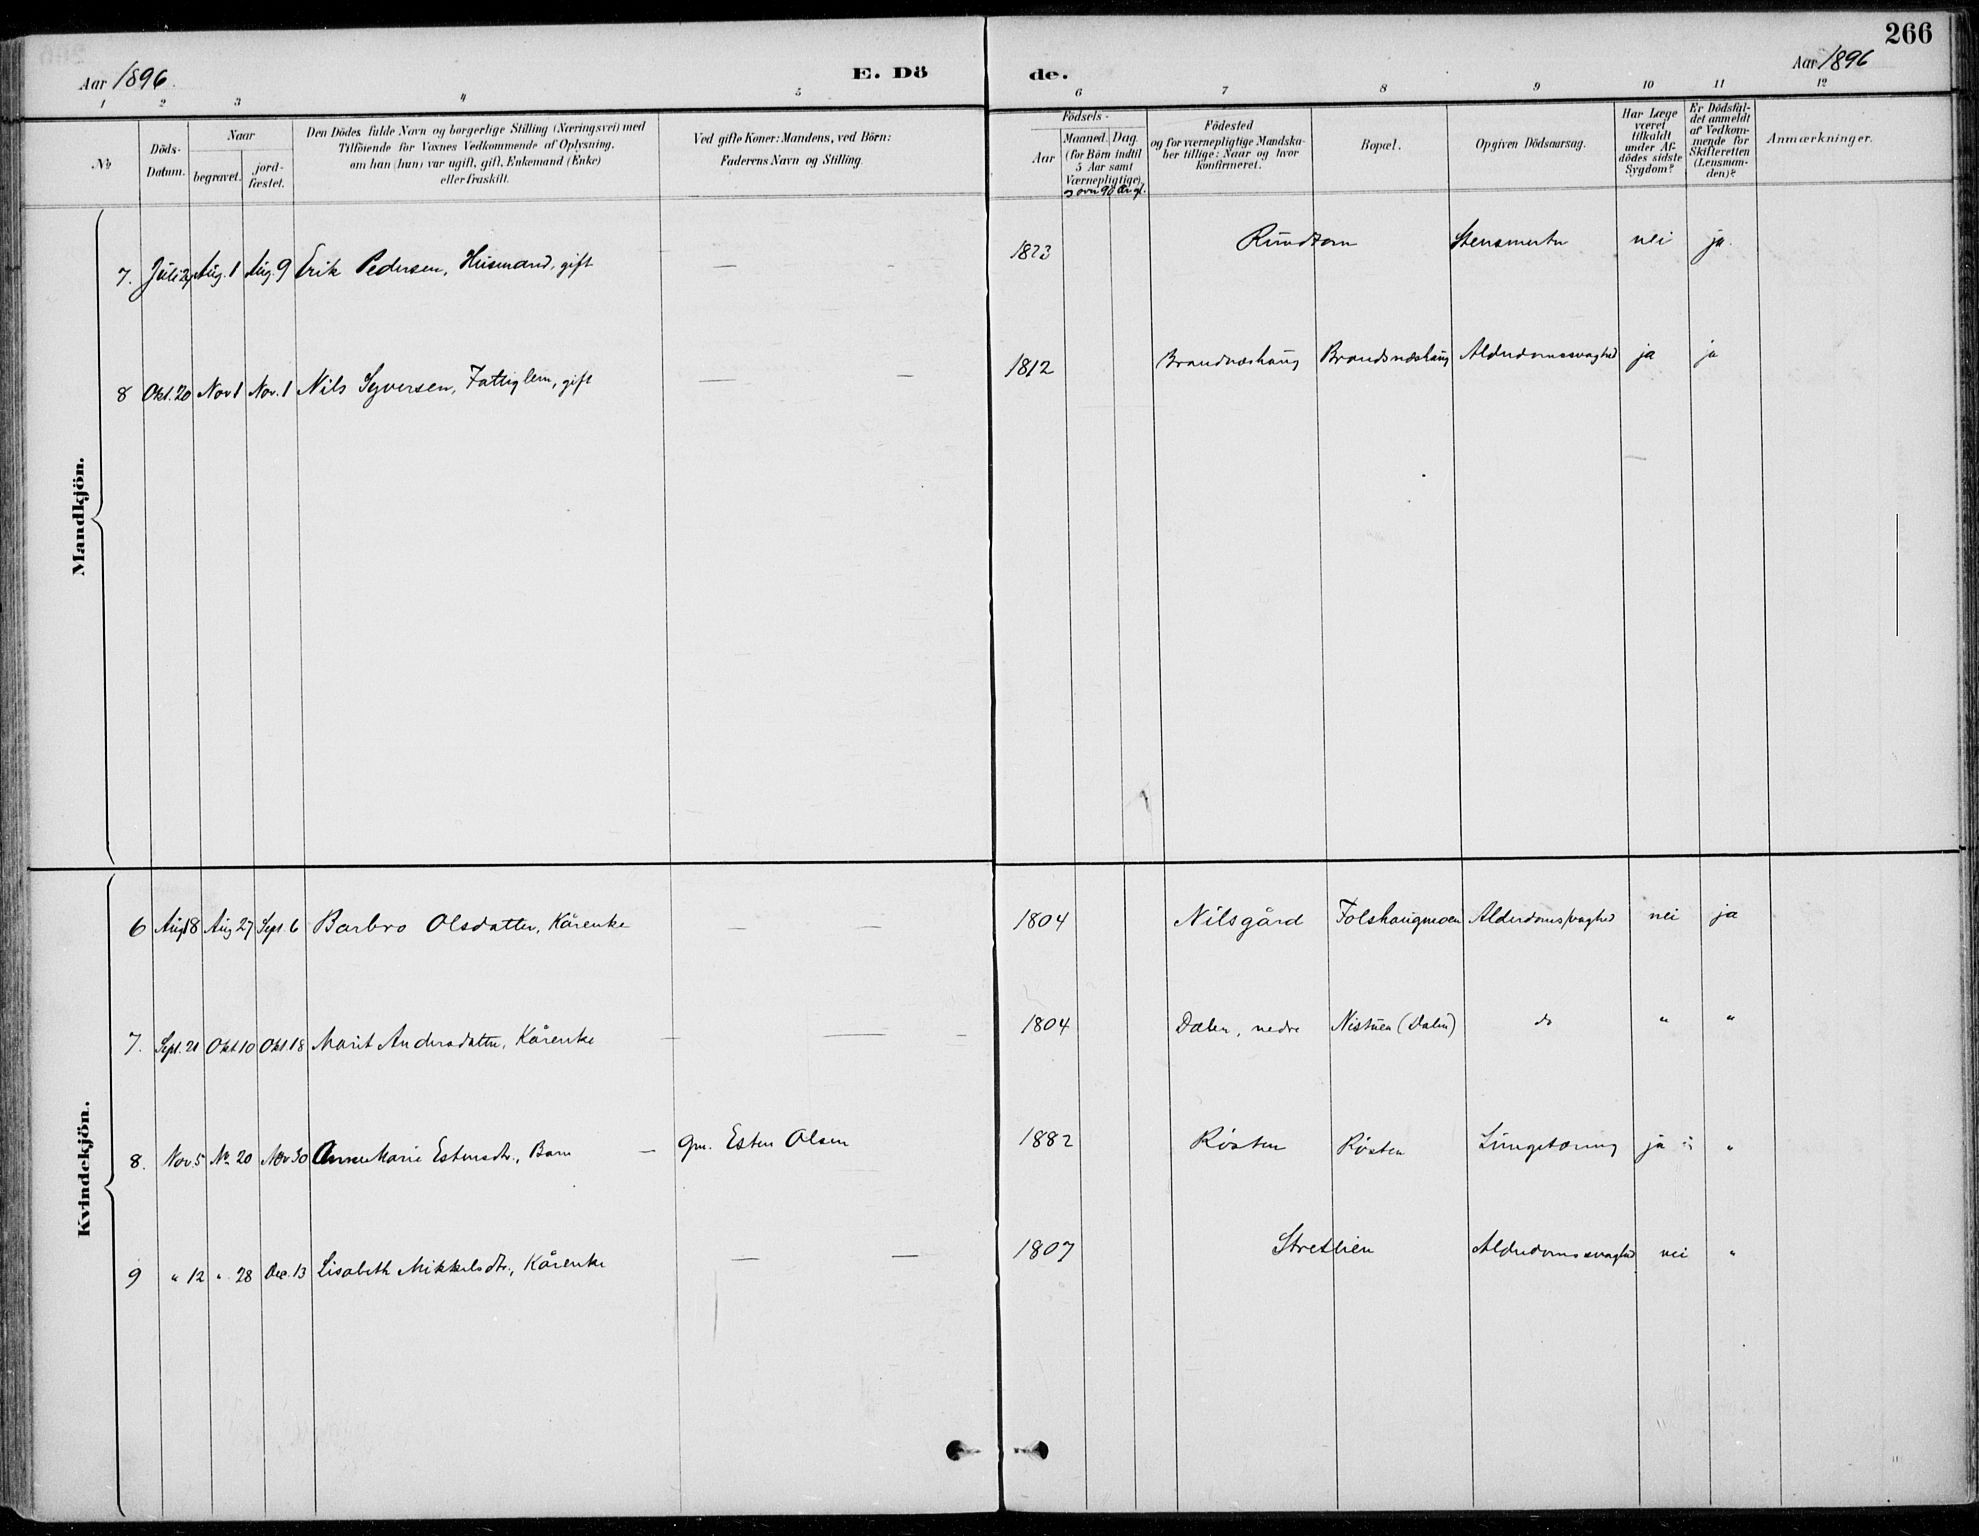 266
Aar 1896.
E. Dö
de.
Aar 1896
1 2 3 4 5 6 7 8 9 10 11 12
No
Döds-Datum.
Naar
begravet.
jord-fæstet.
Den Dödes fulde Navn og borgerlige Stilling (Næringsvei) med
Tilföiende for Voxnes Vedkommende af Oplysning,
om han (hun) var ugift, gift, Enkemand (Enke)
eller fraskilt.
Ved gifte Koner: Mandens, ved Börn:
Faderens Navn og Stilling.
Födsels-
Aar
Maaned. Dag.
(for Börn indtil
5 Aar samt
Værnepligtige)
og over 90 År gl.
Födested
og for værnepligtige Mandska-
ber tillige: Naar og hvor
konfirmeret.
Bopæl.
Opgiven Dödsaarsag.
Har Læge
været
tilkaldt
under Af-
dödes sidste
Sygdom?
Er Dödsfal-
det anmeldt
af Vedkom-
mende for
Skifteretten
(Lensman-
den)?
Anmærkninger.
Mandkjön.
7. Juli Aug. 1 Aug. 9 Erik Pedersen, Husmand, gift — - 1823 Rundtom Stensmerter nei ja.
8 Okt. 20 Nov 1 Nov. 1 Nils Syversen, Fattiglem, gift — - 1812 Brandvoshaug Brandsnæshaug Alderdomssvaghed ja ja
Kvindekjön.
6 Aug 18 Aug 27 Sept 6 Barbro Olsdatter, Kårenke - - 1804 Nilsgård Folshaugmoen Alderdomssvaghed nei ja
7. Sept. 21 Okt 10 Okt 18 Marit Andersdatter, Kårenke - — - 1804 Dalen, nedre Nistuen (Dalen) do " "
8. Nov. 5 No. 20 Nov 30 Anne Marie Estensdtr., Barn — Gm. Esten Olsen 1882 Røsten Røsten Lungetæring ja "
9 " 12 " 28 Dec. 13 Lisabeth Mikkelsdtr., Kårenke — — 1807 Stretlien Alderdomssvaghed nei "